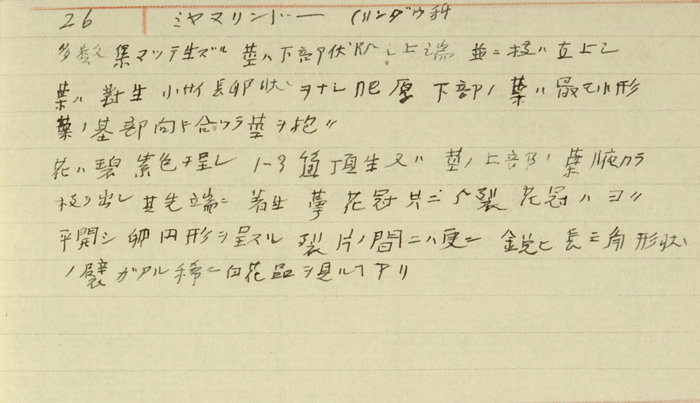 26 ミヤマリンドー (リンダウ科
多数集マッテ生ズル 茎ハ下部ワ伏臥シ上端並ニ枝ハ立上シ
葉ハ対生 小サイ長卵状ヲナシ肥厚 下部ノ葉ハ最モ小形
葉ノ基部向ト合ッテ茎ヲ抱ク
花ハ碧紫色ヲ呈シ 1-3箇頂生又ハ 茎ノ上部ノ葉腋カラ
枝ヲ出シ其先端ニ着生 萼花冠共ニ5裂 花冠ハヨク
平開シ 卵円形ヲ呈スル 裂片ノ間ニハ更ニ 鋭ヒ長三角形状
ノ襞ガアル稀ニ白花品ヲ見ルコアリ